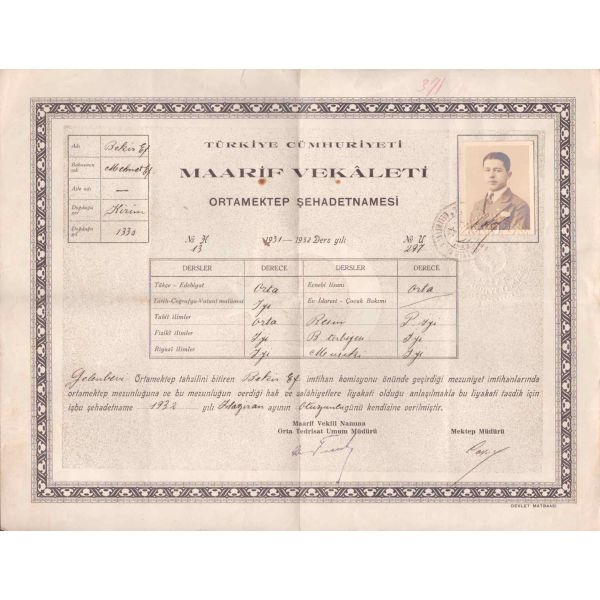 391
TÜRKİYE CÜMHURİYETİ
MAARİF VEKÂLETİ
ORTAMEKTEP ŞEHADETNAMESİ
Adı Bekir Ef.
Babasının adı Mehmet Ef.
Aile adı —
Doğduğu yer Kırım
Doğduğu yıl 1330
№ H 13
1931—1932 Ders yılı
№ U 297
DERSLER DERECE DERSLER DERECE
Türkçe - Edebiyat Orta Ecnebi lisanı Orta
Tarih-Coğrafya-Vatanî malûmat İyi Ev İdaresi - Çocuk Bakımı
Tabiî ilimler Orta Resim P. iyi
Fizikî ilimler İyi B. terbiyesi İyi
Riyazî ilimler İyi Musiki İyi
Gelenbevi Ortamektep tahsilini bitiren Bekir Ef. imtihan komisyonu önünde geçirdiği mezuniyet imtihanlarında
ortamektep mezunluğuna ve bu mezunluğun verdiği hak ve salâhiyetlere liyakati olduğu anlaşılmakla bu liyakati tasdik için
işbu şehadetname 1932 yılı Haziran ayının Otuzuncu günü kendisine verilmiştir.
Maarif Vekili Namına
Orta Tedrisat Umum Müdürü
Mektep Müdürü
DEVLET MATBAASI